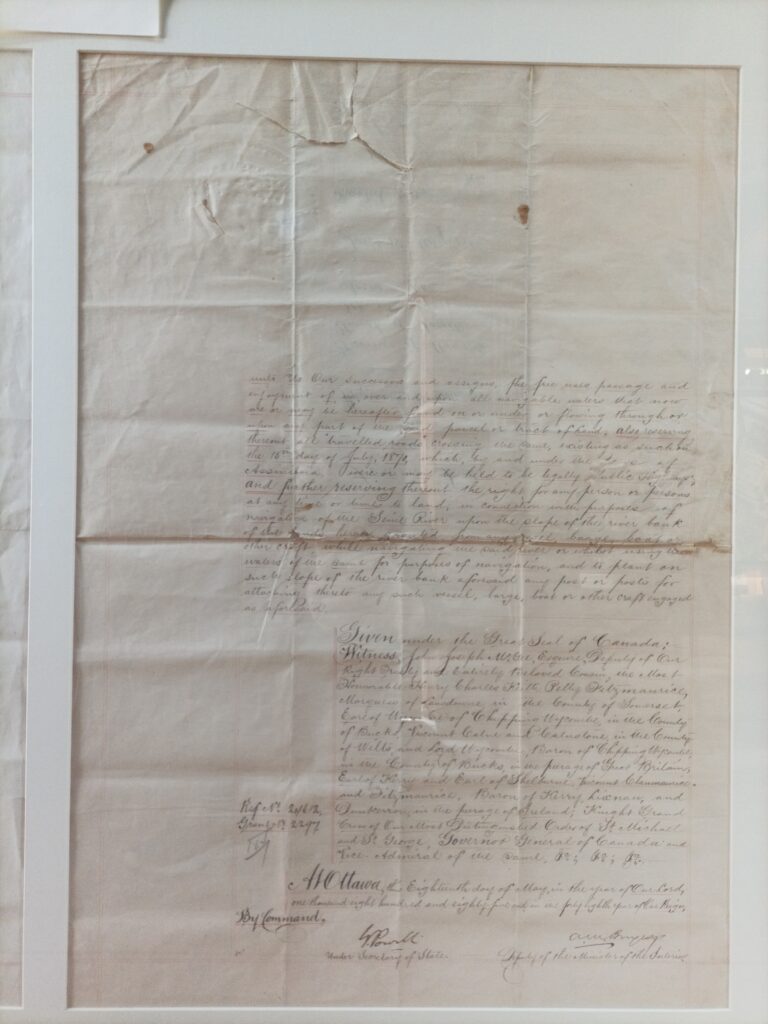 unto Us Our successors and assigns, the free uses, passage and
enjoyment of, in, over and upon all navigable waters that now
are or may be hereafter found on or under or flowing through or
upon any part of the said parcel or tract of land, also reserving
thereout all travelled roads crossing the same, existing as such on
the 15th day of July, 1870, which by and under the
Assiniboia were or may be held to be legally public highways,
and further reserving thereout the right for any person or persons
at any time or times to land, in connection with purposes of
navigation of the Seine River upon the slope of the river bank
of the lands herein granted from any vessel, barge, boat or
other craft whilst navigating the said river or whilst using the
waters of the same for purposes of navigation, and to plant on
such slope of the river bank aforesaid any post or posts for
attaching thereto any such vessel, barge, boat or other craft engaged
as aforesaid.
Given under the Great Seal of Canada:
Witness, John Joseph McGee, Esquire, Deputy of Our
Right Trusty and Entirely Beloved Cousin, the Most
Honorable Henry Charles Keith Petty Fitzmaurice,
Marquess of Lansdowne, in the County of Somerset,
Earl of Wycombe of Chipping Wycombe, in the County
of Bucks, Viscount Calne and Calnstone, in the County
of Wilts, and Lord Wycombe, Baron of Chipping Wycombe,
in the County of Bucks, in the peerage of Great Britain,
Earl of Kerry and Earl of Shelburne, Viscount Clanmaurice
and Fitzmaurice, Baron of Kerry, Lixnaw, and
Dunkerron, in the peerage of Ireland; Knight Grand
Cross of Our Most Distinguished Order of St Michael
and St George, Governor General of Canada and
Vice-Admiral of the same, &c, &c, &c.
Ref No.
Grant No. 2297
At Ottawa, the Eighteenth day of May, in the year of Our Lord,
one thousand eight hundred and eighty five and in the forty eighth year of Our Reign.
By Command.
G Powell
Under Secretary of State.
Deputy of the Minister of the Interior.